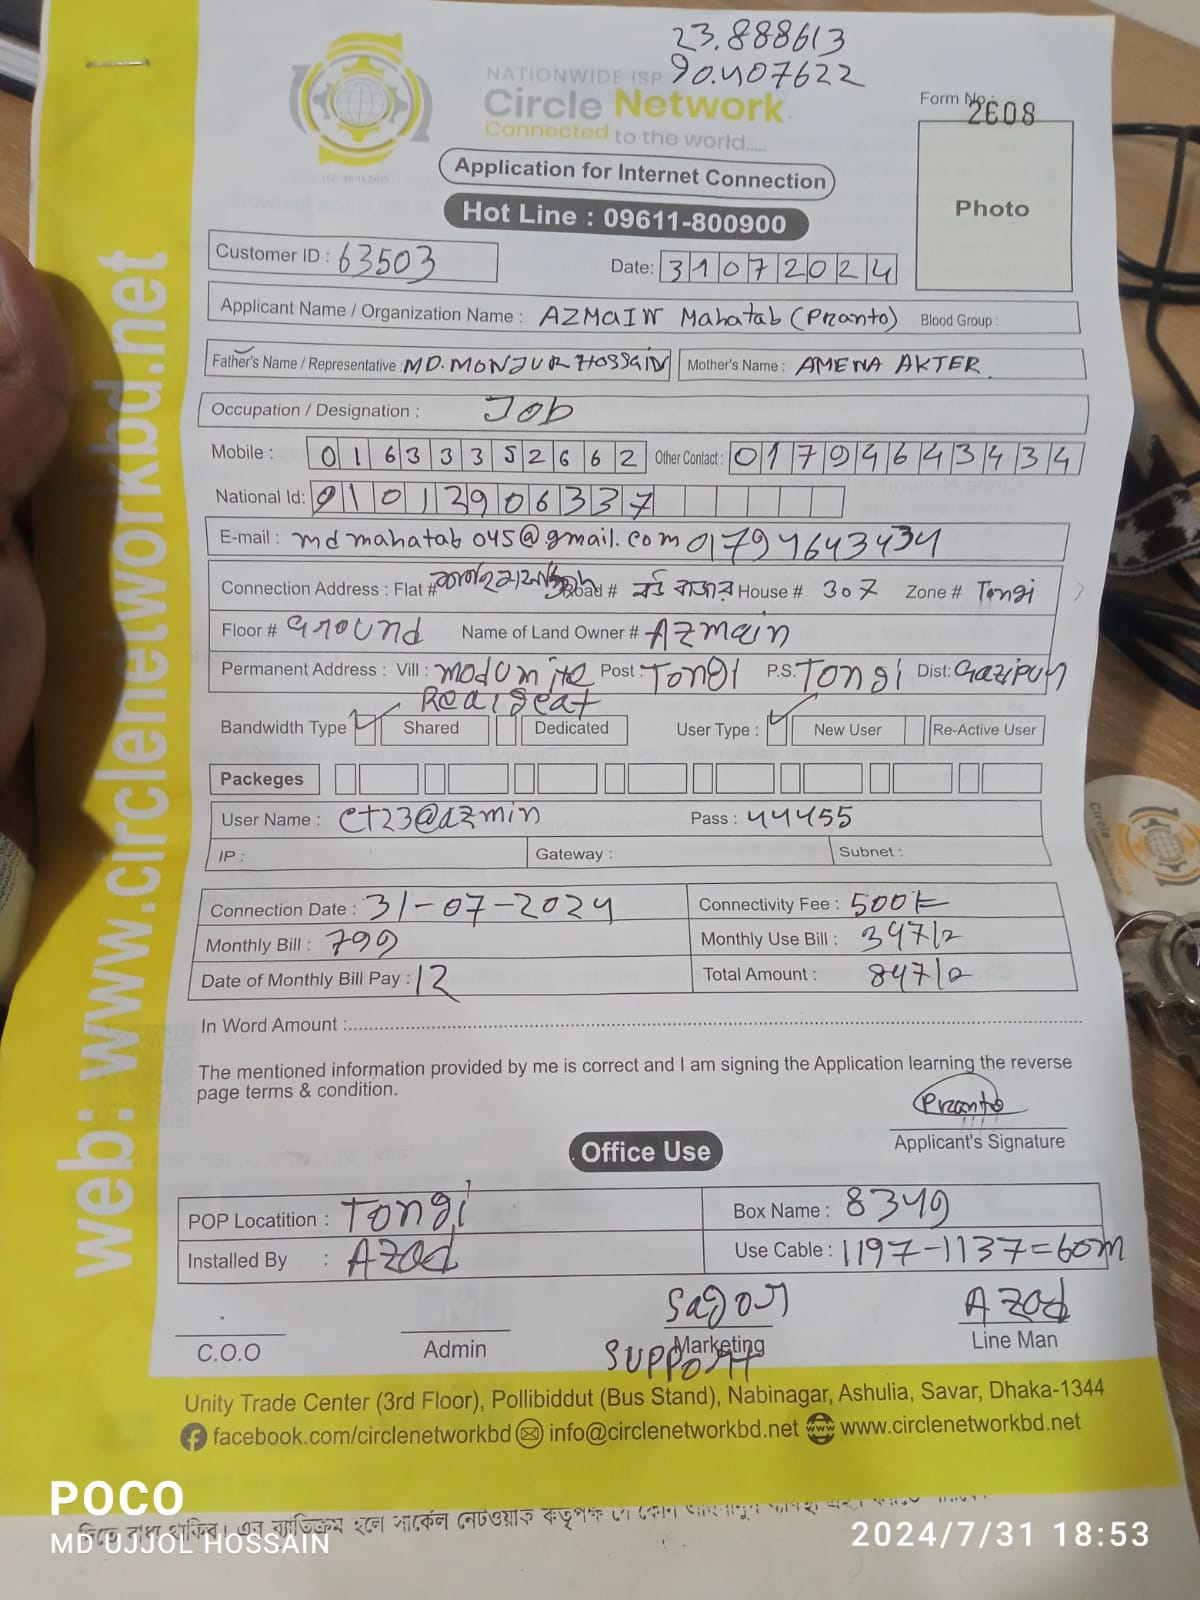 23.888613
90.407622
NATIONWIDE ISP
Circle Network
Connected to the world.....
ISO 9001:2015
Form No.: 2608
Application for Internet Connection
Photo
Hot Line : 09611-800900
Customer ID : 63503
Date: 31072024
Applicant Name / Organization Name : AZMAIN Mahatab (Pranto) Blood Group :
Father's Name / Representative : MD. MONJUR HOSSAIN Mother's Name : AMENA AKTER
Occupation / Designation : Job
Mobile : 01633352662 Other Contact : 01794643434
National Id: 91012906337
E-mail : mdmahatab045@gmail.com 01794643434
Connection Address : Flat # Road # বউ বাজার House # 307 Zone # Tongi
Floor # Ground Name of Land Owner # AZmain
Permanent Address : Vill : modumita Post : Tongi P.S. Tongi Dist: Gazipur
Real
Bandwidth Type ✓ Shared Dedicated User Type : ✓ New User Re-Active User
Packeges
User Name : ct23@azmin Pass : 44455
IP : Gateway : Subnet :
Connection Date : 31-07-2024 Connectivity Fee : 500/=
Monthly Bill : 799 Monthly Use Bill : 347/=
Date of Monthly Bill Pay : 12 Total Amount : 847/=
In Word Amount :
The mentioned information provided by me is correct and I am signing the Application learning the reverse
page terms & condition.
Pranto
Applicant's Signature
Office Use
POP Locatition : Tongi Box Name : 8349
Installed By : AZad Use Cable : 1197-1137=60m
Sagor AZad
C.O.O Admin Marketing Line Man
SUPPORT
Unity Trade Center (3rd Floor), Pollibiddut (Bus Stand), Nabinagar, Ashulia, Savar, Dhaka-1344
facebook.com/circlenetworkbd info@circlenetworkbd.net www.circlenetworkbd.net
web: www.circlenetworkbd.net
Circle Network
POCO
MD UJJOL HOSSAIN
2024/7/31 18:53